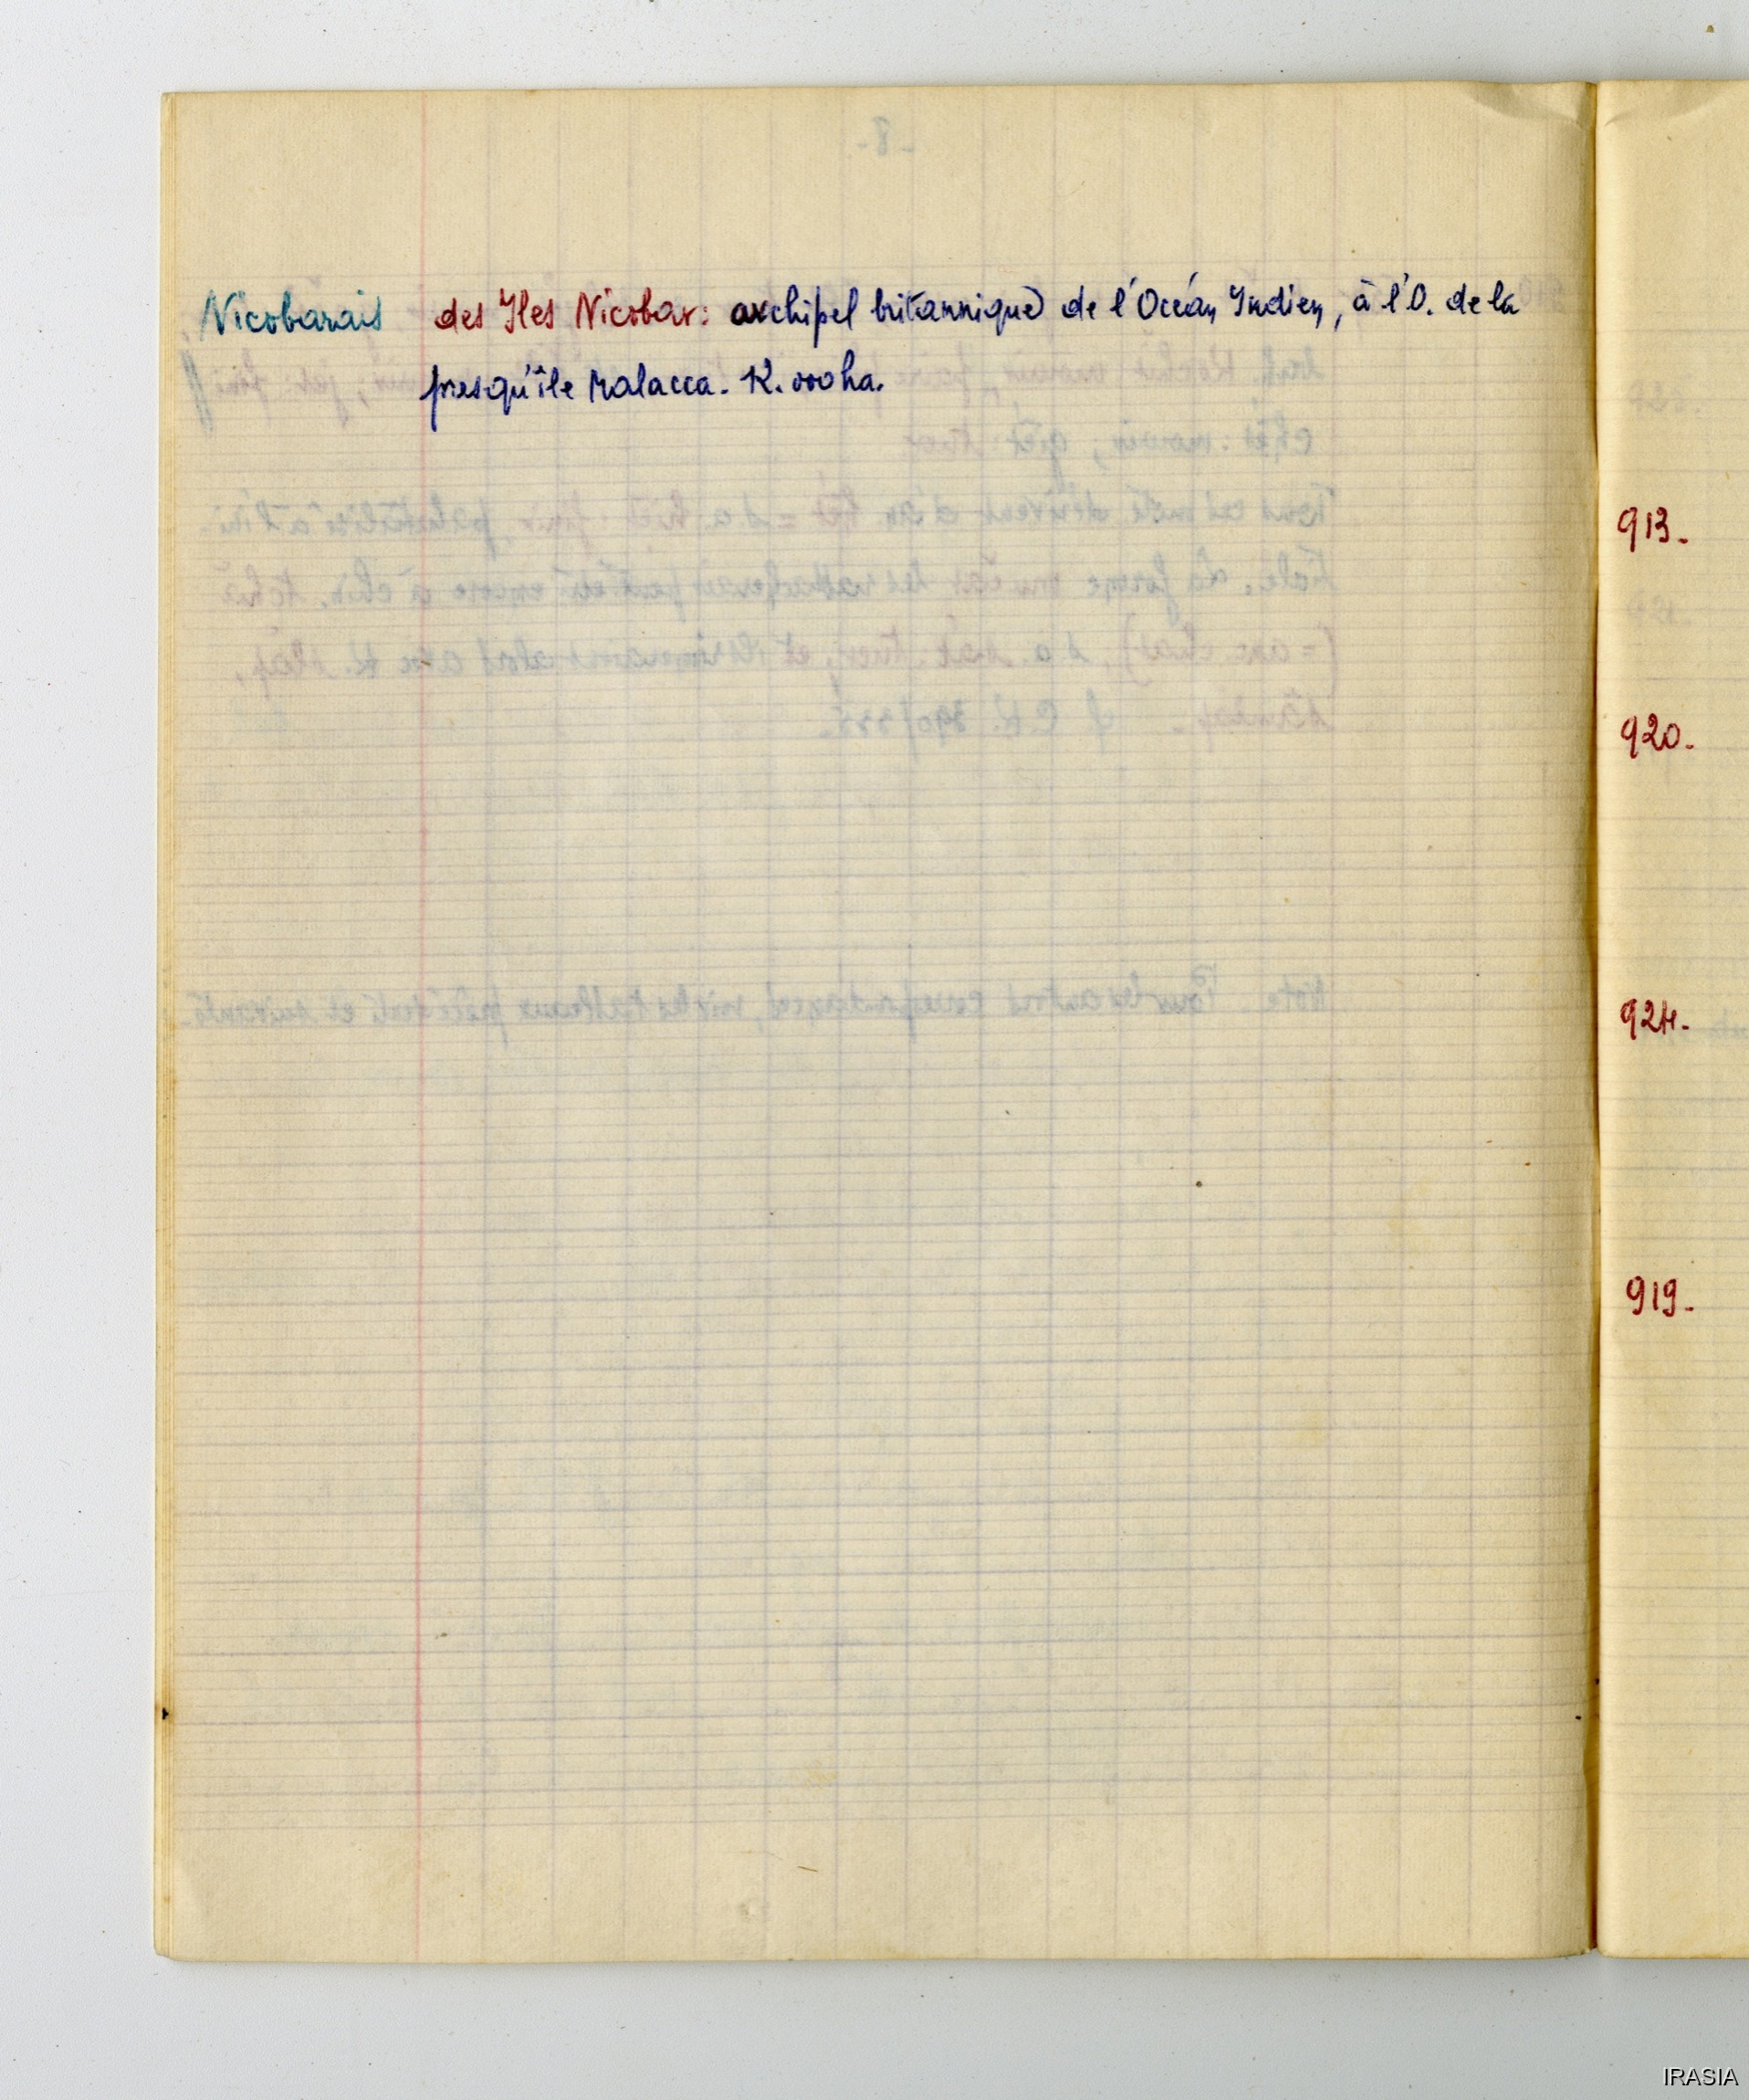 Nicobarais des Iles Nicobar: archipel britannique de l'Océan Indien, à l'O. de la
presqu'île Malacca. K.
913.
920.
924.
919.
IRASIA